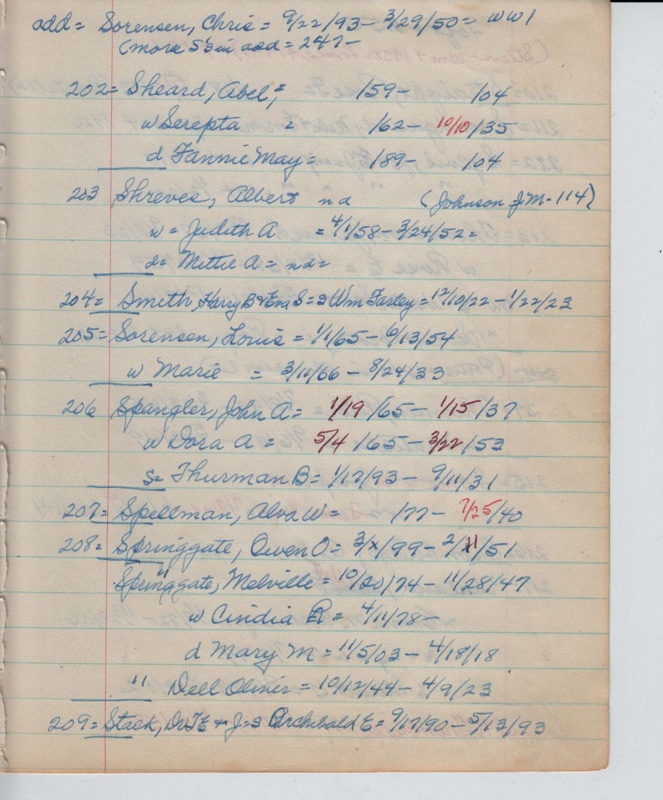 add = Sorensen, Chris = 9/22/93 - 3/29/50 = WW1
(more S's in add = 247 -
202 = Sheard, Abel, = /59 - /04
w Serepta = /62 - 10/10/35
d Fannie May = /89 - /04
203 Shreves, Albert nd (Johnson J M - 114)
w = Judith A = 4/1/58 - 3/24/52 =
d = Mettie A = nd =
204 = Smith, Harry B & Ena S = s Wm Farley = 12/10/22 - 1/22/23
205 = Sorensen, Louis = 1/1/65 - 6/13/54
w Marie = 3/11/66 - 8/24/33
206 Spangler, John A = 1/19/65 - 1/15/37
w Dora A = 5/4/65 - 3/22/53
s = Thurman B = 1/17/93 - 9/11/31
207 = Spellman, Alva W = /77 - 7/25/40
208 = Springgate, Owen O = 3/x/99 - 2/11/51
Springgate, Melville = 10/20/74 - 11/28/47
w Cindia R = 4/11/78 -
d Mary M = 11/5/03 - 4/18/18
" Dell Oliver = 10/12/44 - 4/9/23
209 = Stack, Dr T E & J = s Archibald E = 9/17/90 - 5/13/93